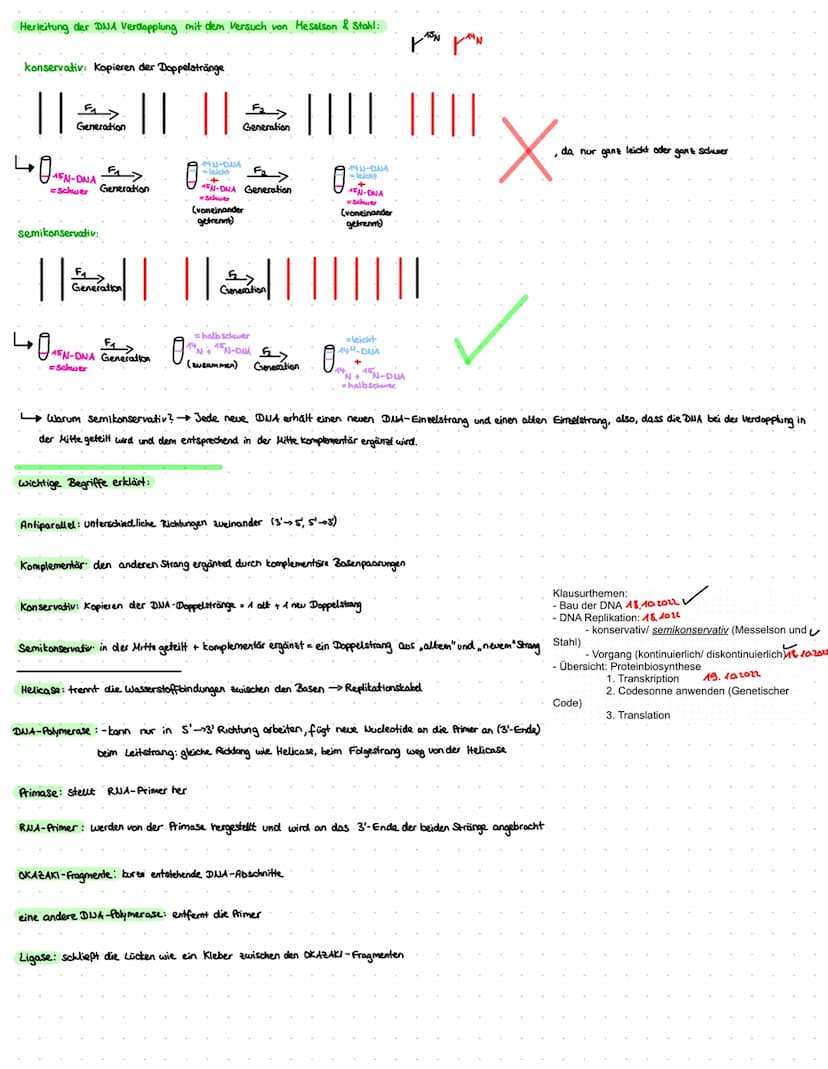 Herleitung der DNA Verdopplung mit dem Versuch von Meselson & Stahl:
15N 14N
konservativ: Kopieren der Doppelstränge
F1 Generation F2 Generation
, da nur ganz leicht oder ganz schwer
15N-DNA = schwer F1 Generation 14N-DNA = leicht + 15N-DNA = schwer (voneinander getrennt) F2 Generation 14N-DNA = leicht + 15N-DNA = schwer (voneinander getrennt)
semikonservativ:
F1 Generation F2 Generation
15N-DNA = schwer F1 Generation = halbschwer 14N + 15N-DNA (zusammen) F2 Generation = leicht 14N-DNA + 14N + 15N-DNA = halbschwer
Warum semikonservativ? → Jede neue DNA erhält einen neuen DNA-Einzelstrang und einen alten Einzelstrang, also, dass die DNA bei der Verdopplung in
der Mitte geteilt wird und dem entsprechend in der Mitte komplementär ergänzt wird.
Wichtige Begriffe erklärt:
Antiparallel: unterschiedliche Richtungen zueinander (3'→5', 5'→3')
Komplementär: den anderen Strang ergänzed durch komplementäre Basenpaarungen
Konservativ: Kopieren der DNA-Doppelstränge = 1 alt + 1 neu Doppelstrang
Semikonservativ: in der Mitte geteilt + komplementär ergänzt = ein Doppelstrang aus „altem" und „neuem" Strang
Helicase: trennt die Wasserstoffbindungen zwischen den Basen → Replikationsgabel
DNA-Polymerase: - kann nur in 5'→3' Richtung arbeiten, fügt neue Nucleotide an die Primer an (3'-Ende)
beim Leitstrang: gleiche Richtung wie Helicase, beim Folgestrang weg von der Helicase
Primase: stellt RNA-Primer her
RNA-Primer: werden von der Primase hergestellt und wird an das 3'-Ende der beiden Stränge angebracht
OKAZAKI-Fragmente: kurze entstehende DNA-Abschnitte
eine andere DNA-Polymerase: entfernt die Primer
Ligase: schließt die Lücken wie ein Kleber zwischen den OKAZAKI-Fragmenten
Klausurthemen:
- Bau der DNA 18.10.2022
- DNA Replikation: 18.1022
- konservativ/ semikonservativ (Messelson und
Stahl)
- Vorgang (kontinuierlich/ diskontinuierlich) 18.10.2022
- Übersicht: Proteinbiosynthese
1. Transkription 19.10.2022
2. Codesonne anwenden (Genetischer
Code)
3. Translation